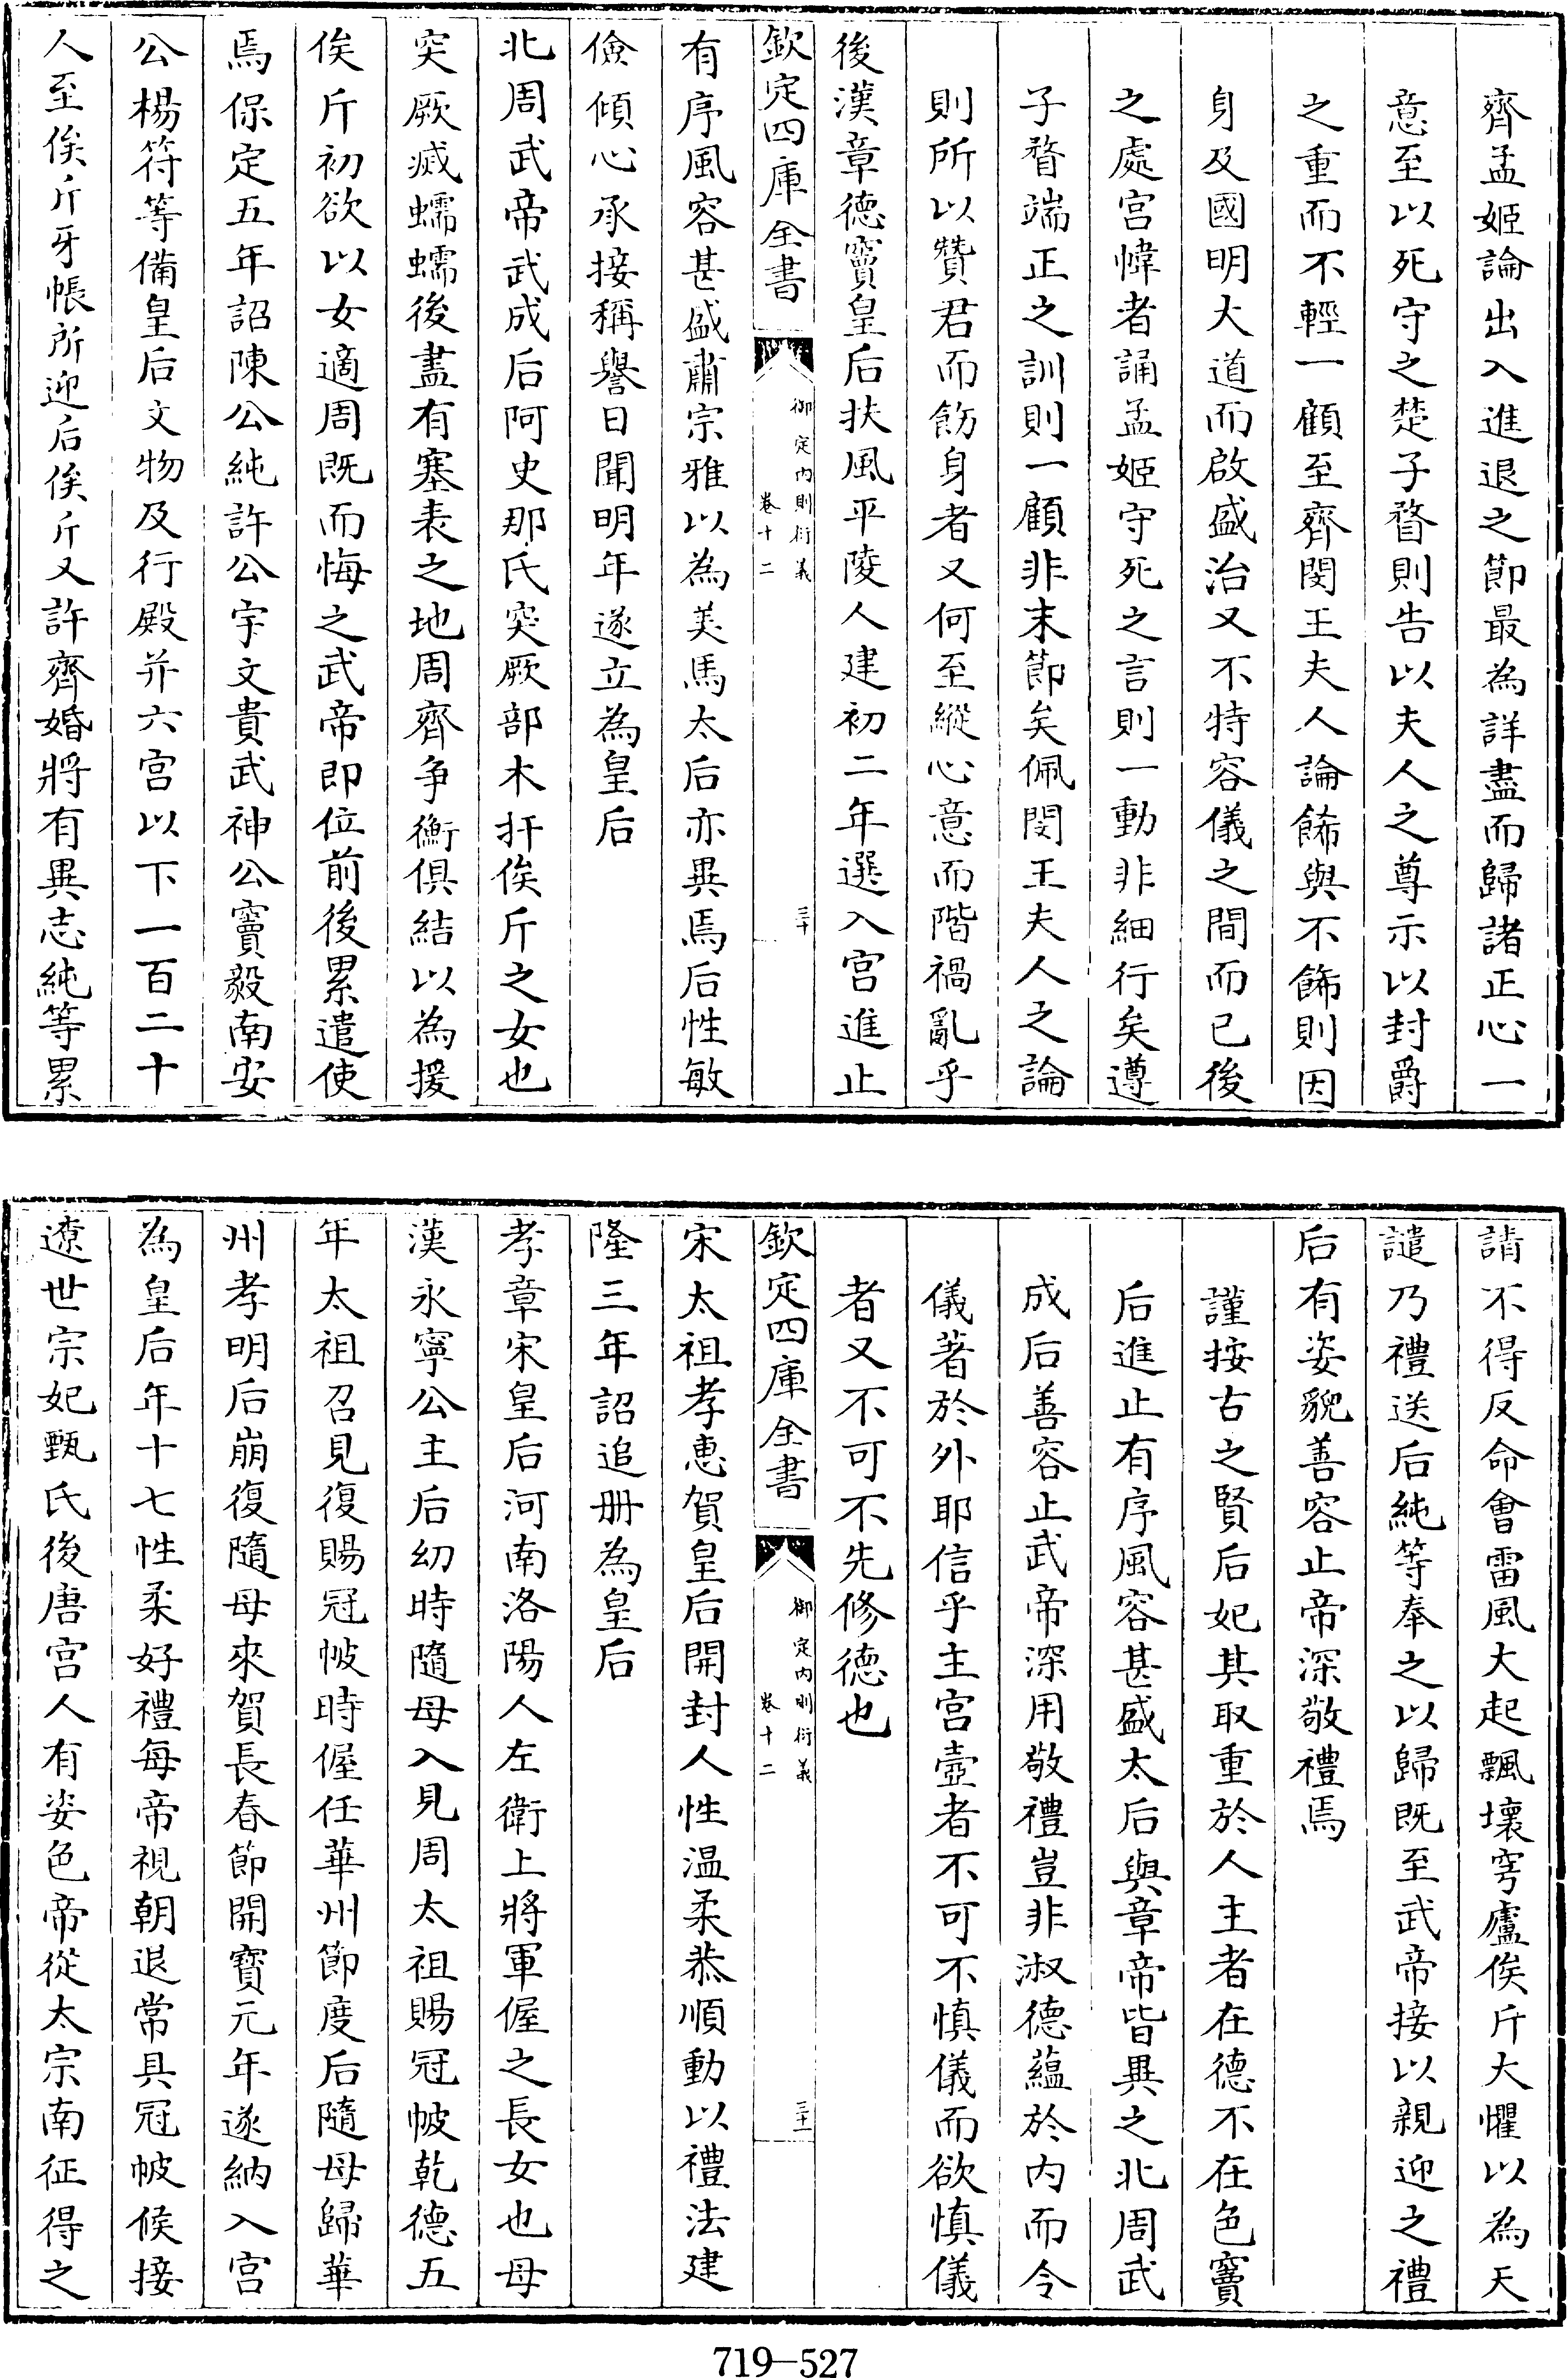 齊孟姬論出入進退之節最為詳盡而歸諸正心一
意至以死守之楚子瞀則告以夫人之尊示以封爵
之重而不輕一顧至齊閔王夫人論飾與不飾則因
身及國明大道而啟盛治又不特容儀之間而已後
之處宮幃者誦孟姬守死之言則一動非細行矣遵
子瞀端正之訓則一顧非末節矣佩閔王夫人之論
則所以贊君而飭身者又何至縱心意而階禍亂乎
後漢章德竇皇后扶風平陵人建初二年選入宮進止
欽定四庫全書
御定內則衍義
卷十二
三十
有序風容甚盛肅宗雅以為美馬太后亦異焉后性敏
儉傾心承接稱譽日聞明年遂立為皇后
北周武帝武成后阿史那氏突厥部木扞俟斤之女也
突厥滅蠕蠕後盡有塞表之地周齊爭衡俱結以為援
俟斤初欲以女適周既而悔之武帝即位前後累遣使
焉保定五年詔陳公純許公宇文貴武神公竇毅南安
公楊符等備皇后文物及行殿并六宮以下一百二十
人至俟斤牙帳所迎后俟斤又許齊婚將有異志純等累
請不得反命會雷風大起飄壞穹廬俟斤大懼以為天
譴乃禮送后純等奉之以歸既至武帝接以親迎之禮
后有姿貌善容止帝深敬禮焉
謹按古之賢后妃其取重於人主者在德不在色竇
后進止有序風容甚盛太后與章帝皆異之北周武
成后善容止武帝深用敬禮豈非淑德蘊於內而令
儀著於外耶信乎主宮壼者不可不慎儀而欲慎儀
者又不可不先修德也
欽定四庫全書
御定內則衍義
卷十二
三十一
宋太祖孝惠賀皇后開封人性溫柔恭順動以禮法建
隆三年詔追册為皇后
孝章宋皇后河南洛陽人左衛上將軍偓之長女也母
漢永寧公主后幼時隨母入見周太祖賜冠帔乾德五
年太祖召見復賜冠帔時偓任華州節度后隨母歸華
州孝明后崩復隨母來賀長春節開寶元年遂納入宮
為皇后年十七性柔好禮每帝視朝退常具冠帔候接
遼世宗妃甄氏後唐宮人有姿色帝從太宗南征得之
719—527